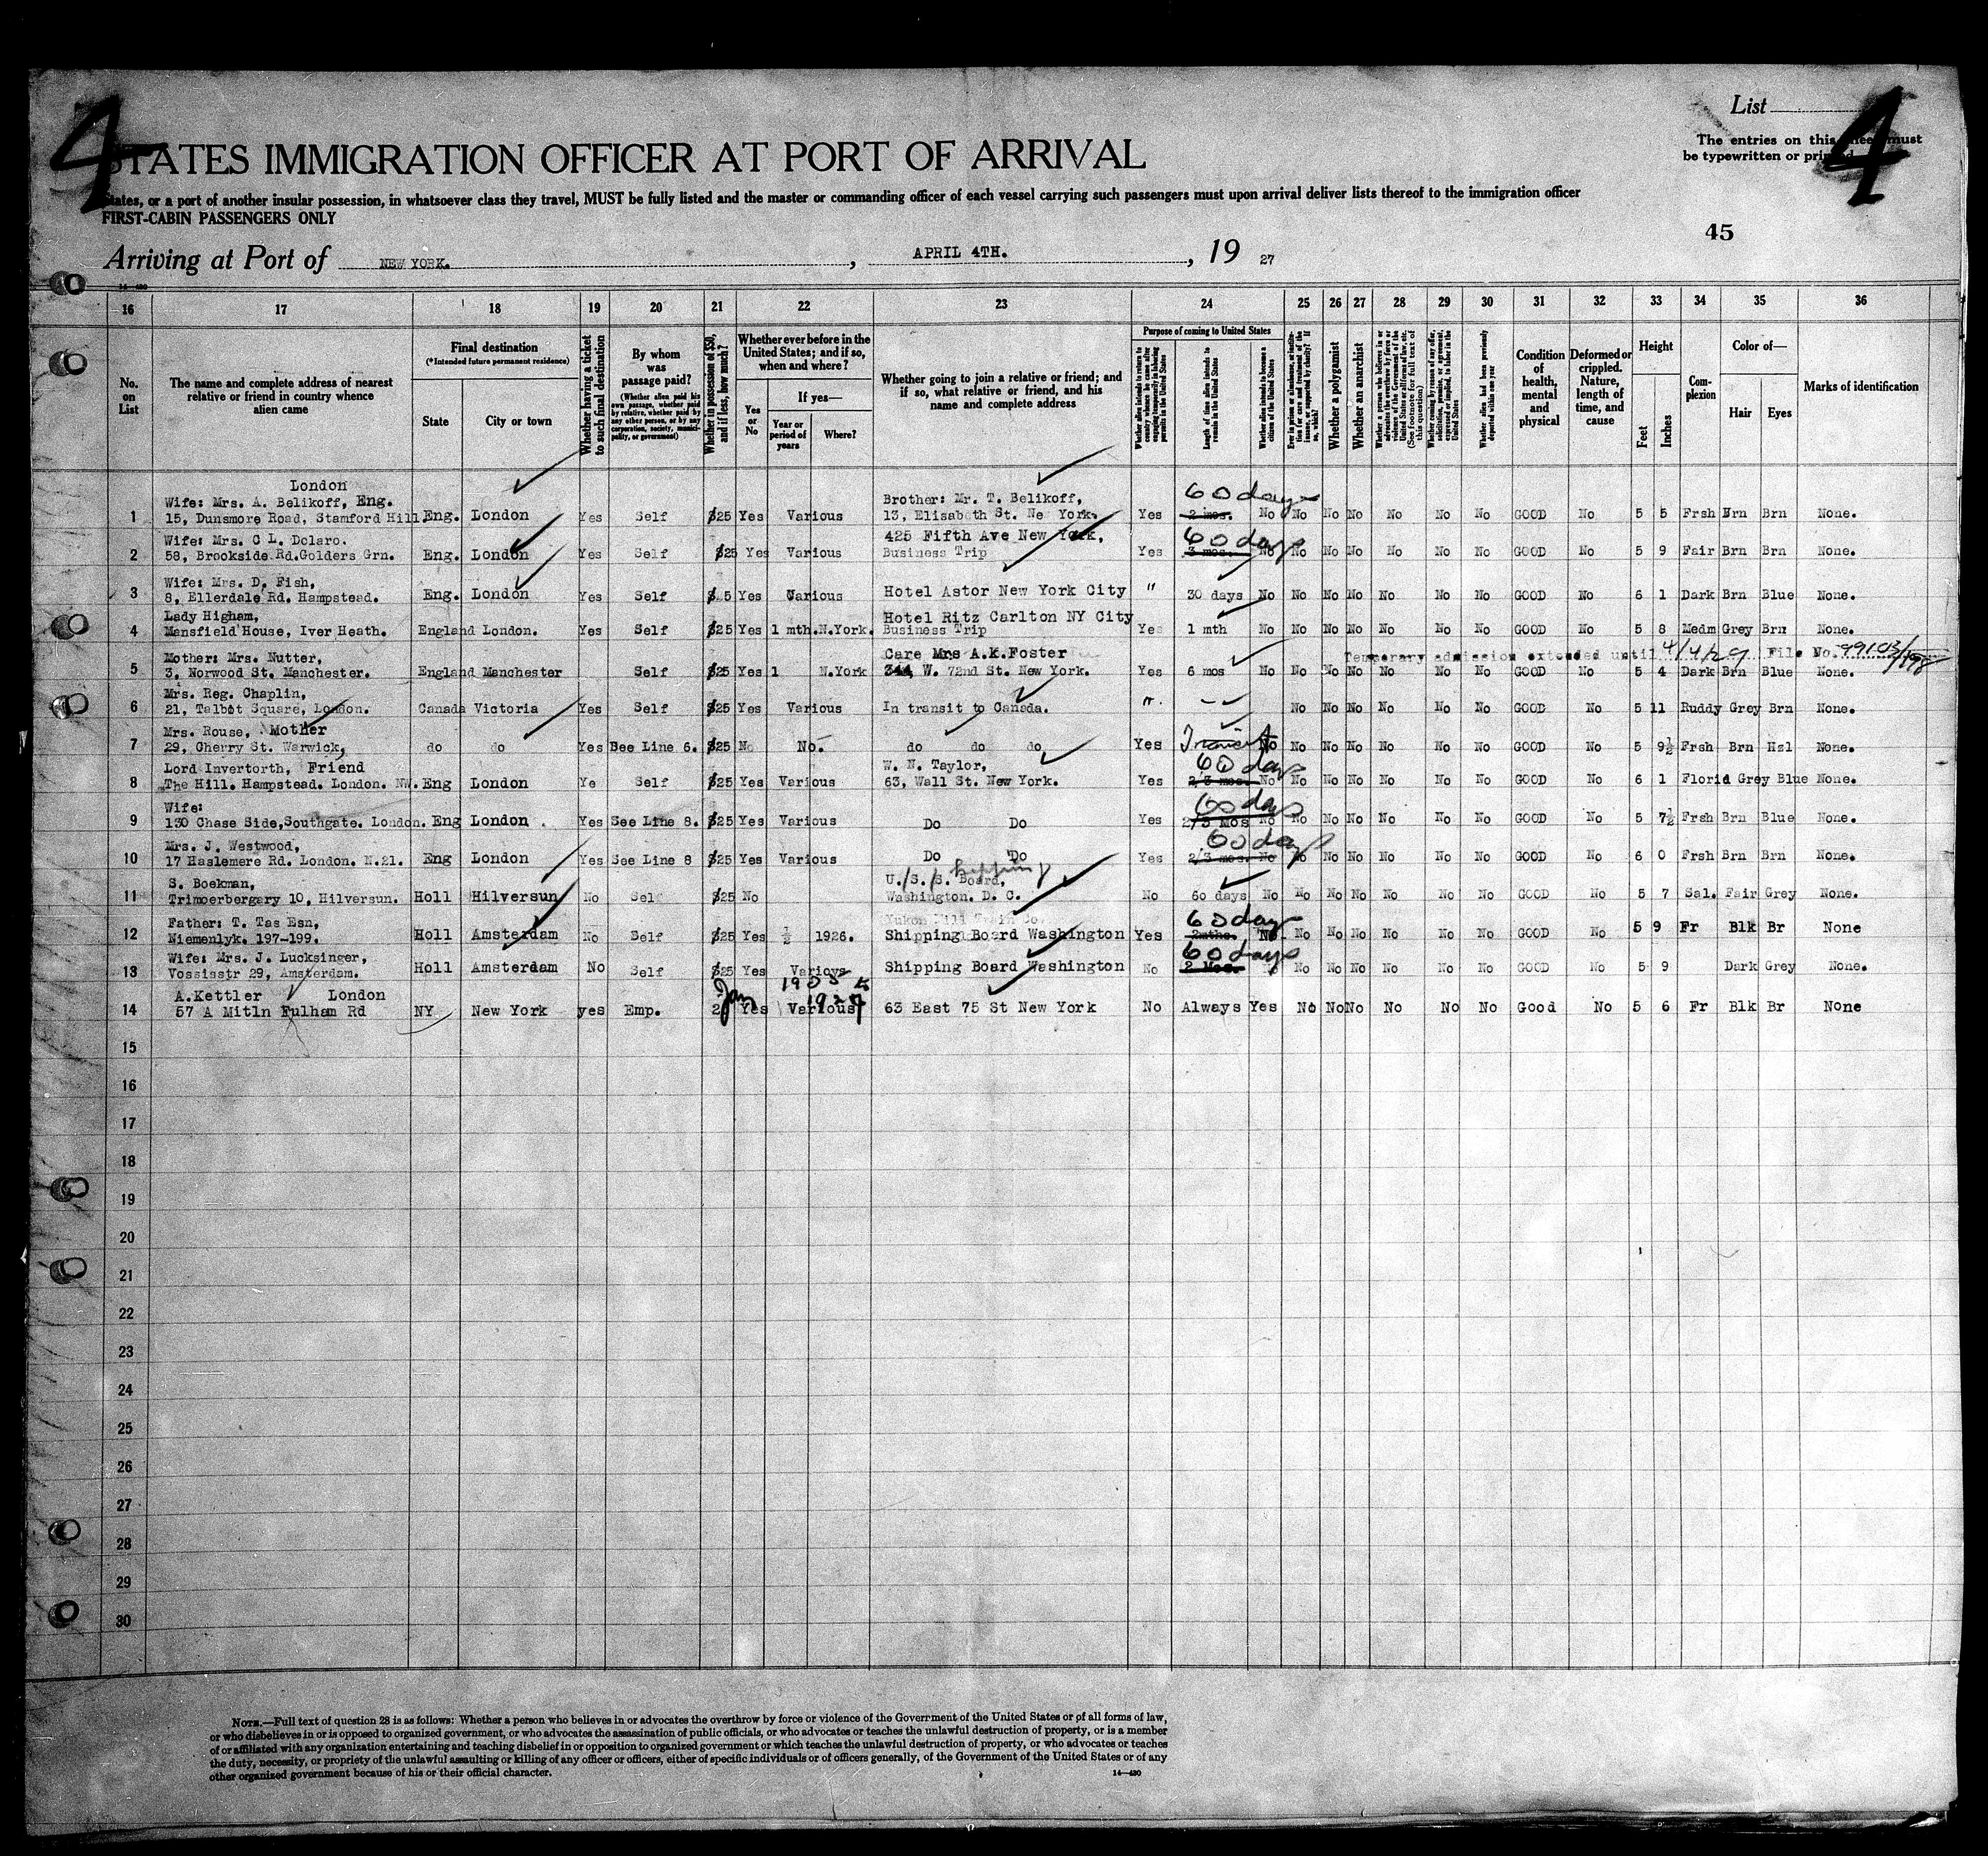 4
4
List
The entries on this sheet must
be typewritten or printed
STATES IMMIGRATION OFFICER AT PORT OF ARRIVAL
States, or a port of another insular possession, in whatsoever class they travel, MUST be fully listed and the master or commanding officer of each vessel carrying such passengers must upon arrival deliver lists thereof to the immigration officer
FIRST-CABIN PASSENGERS ONLY
45
Arriving at Port of NEW YORK. , APRIL 4TH. , 19 27
14-430
16 17 18 19 20 21 22 23 24 25 26 27 28 29 30 31 32 33 34 35 36
No. on List
The name and complete address of nearest relative or friend in country whence alien came
Final destination
(*Intended future permanent residence)
State
City or town
Whether having a ticket to such final destination
By whom was passage paid?
(Whether alien paid his own passage, whether paid by relative, whether paid by any other person, or by any corporation, society, municipality, or government)
Whether in possession of $50, and if less, how much?
Whether ever before in the United States; and if so, when and where?
Yes or No
If yes—
Year or period of years
Where?
Whether going to join a relative or friend; and if so, what relative or friend, and his name and complete address
Purpose of coming to United States
Whether alien intends to return to country whence he came after engaging temporarily in laboring pursuits in the United States
Length of time alien intends to remain in the United States
Whether alien intends to become a citizen of the United States
Whether a polygamist
Whether an anarchist
Condition of health, mental and physical
Deformed or crippled. Nature, length of time, and cause
Height
Feet
Inches
Complexion
Color of—
Hair
Eyes
Marks of identification
London
Wife: Mrs. A. Belikoff, Eng. Brother: Mr. T. Belikoff, 60 days
1 15, Dunsmore Road, Stamford Hill. Eng. London Yes Self $25 Yes Various 13, Elisabeth St. Ne York. Yes 2 mos. No No No No No No No GOOD No 5 5 Frsh Brn Brn None.
Wife: Mrs. C L. Dolaro. 425 Fifth Ave New York, 60 days
2 58, Brookside Rd.Golders Grn. Eng. London Yes Self $25 Yes Various Business Trip Yes 3 mos. No No No No No No No GOOD No 5 9 Fair Brn Brn None.
Wife: Mrs. D. Fish,
3 8, Ellerdale Rd. Hampstead. Eng. London Yes Self $25 Yes Various Hotel Astor New York City " 30 days No No No No No No No GOOD No 6 1 Dark Brn Blue None.
Lady Higham, Hotel Ritz Carlton NY City
4 Mansfield House, Iver Heath. England London. Yes Self $25 Yes 1 mth. N.York. Business Trip Yes 1 mth No No No No No No No GOOD No 5 8 Medm Grey Brn None.
Mother: Mrs. Nutter, Care Mrs A.K.Foster Temporary admission extended until 4/4/29 File No. 99103/198
5 3, Norwood St. Manchester. England Manchester Self $25 Yes 1 N.York 344, W. 72nd St. New York. Yes 6 mos No No No No No No No GOOD No 5 4 Dark Brn Blue None.
Mrs. Reg. Chaplin,
6 21, Talbot Square, London. Canada Victoria Yes Self $25 Yes Various In transit to Canada. " - No No No No No No GOOD No 5 11 Ruddy Grey Brn None.
Mrs. Rouse, Mother
7 29, Cherry St. Warwick, do do Yes See Line 6. $25 No No. do do do Yes Transit No No No No No No No GOOD No 5 9½ Frsh Brn Hzl None.
Lord Invertorth, Friend W. N. Taylor, 60 days
8 The Hill. Hampstead. London. NW. Eng London Ye Self $25 Yes Various 63, Wall St. New York. Yes 2/3 mos No No No No No No No GOOD No 6 1 Florid Grey Blue None.
Wife: 60 days
9 130 Chase Side, Southgate. London. Eng London Yes See Line 8. $25 Yes Various Do Do Yes 2/3 Mos No No No No No No No GOOD No 5 7½ Frsh Brn Blue None.
Mrs. J. Westwood, 60 days
10 17 Haslemere Rd. London. N.21. Eng London Yes See Line 8 $25 Yes Various Do Do Yes 2/3 mos. No No No No No No No GOOD No 6 0 Frsh Brn Brn None.
S. Boekman, U./S./S. Board, Shipping
11 Trimoerbergary 10, Hilversun. Holl Hilversun No Self $25 No Washington. D. C. No 60 days No No No No No No No GOOD No 5 7 Sal. Fair Grey None.
Father: T. Tas Esn, 60 days
12 Niemenlyk. 197-199. Holl Amsterdam No Self $25 Yes ½ 1926. Shipping Board Washington Yes 2mths. No No No No No No No GOOD No 5 9 Fr Blk Br None
Wife: Mrs. J. Lucksinger, 60 days
13 Vossisstr 29, Amsterdam. Holl Amsterdam No Self $25 Yes Various Shipping Board Washington No 2 Mos. No No No No No No GOOD No 5 9 Dark Grey None.
A.Kettler London Jan 1927
14 57 A Mitln Fulham Rd NY New York yes Emp. Yes Various 63 East 75 St New York No Always Yes No No No No No No Good No 5 6 Fr Blk Br None
15
16
17
18
19
20
21
22
23
24
25
26
27
28
29
30
NOTE.—Full text of question 28 is as follows: Whether a person who believes in or advocates the overthrow by force or violence of the Government of the United States or of all forms of law,
or who disbelieves in or is opposed to organized government, or who advocates the assassination of public officials, or who advocates or teaches the unlawful destruction of property, or is a member
of or affiliated with any organization entertaining and teaching disbelief in or opposition to organized government or which teaches the unlawful destruction of property, or who advocates or teaches
the duty, necessity, or propriety of the unlawful assaulting or killing of any officer or officers, either of specific individuals or of officers generally, of the Government of the United States or of any
other organized government because of his or their official character.
14-430